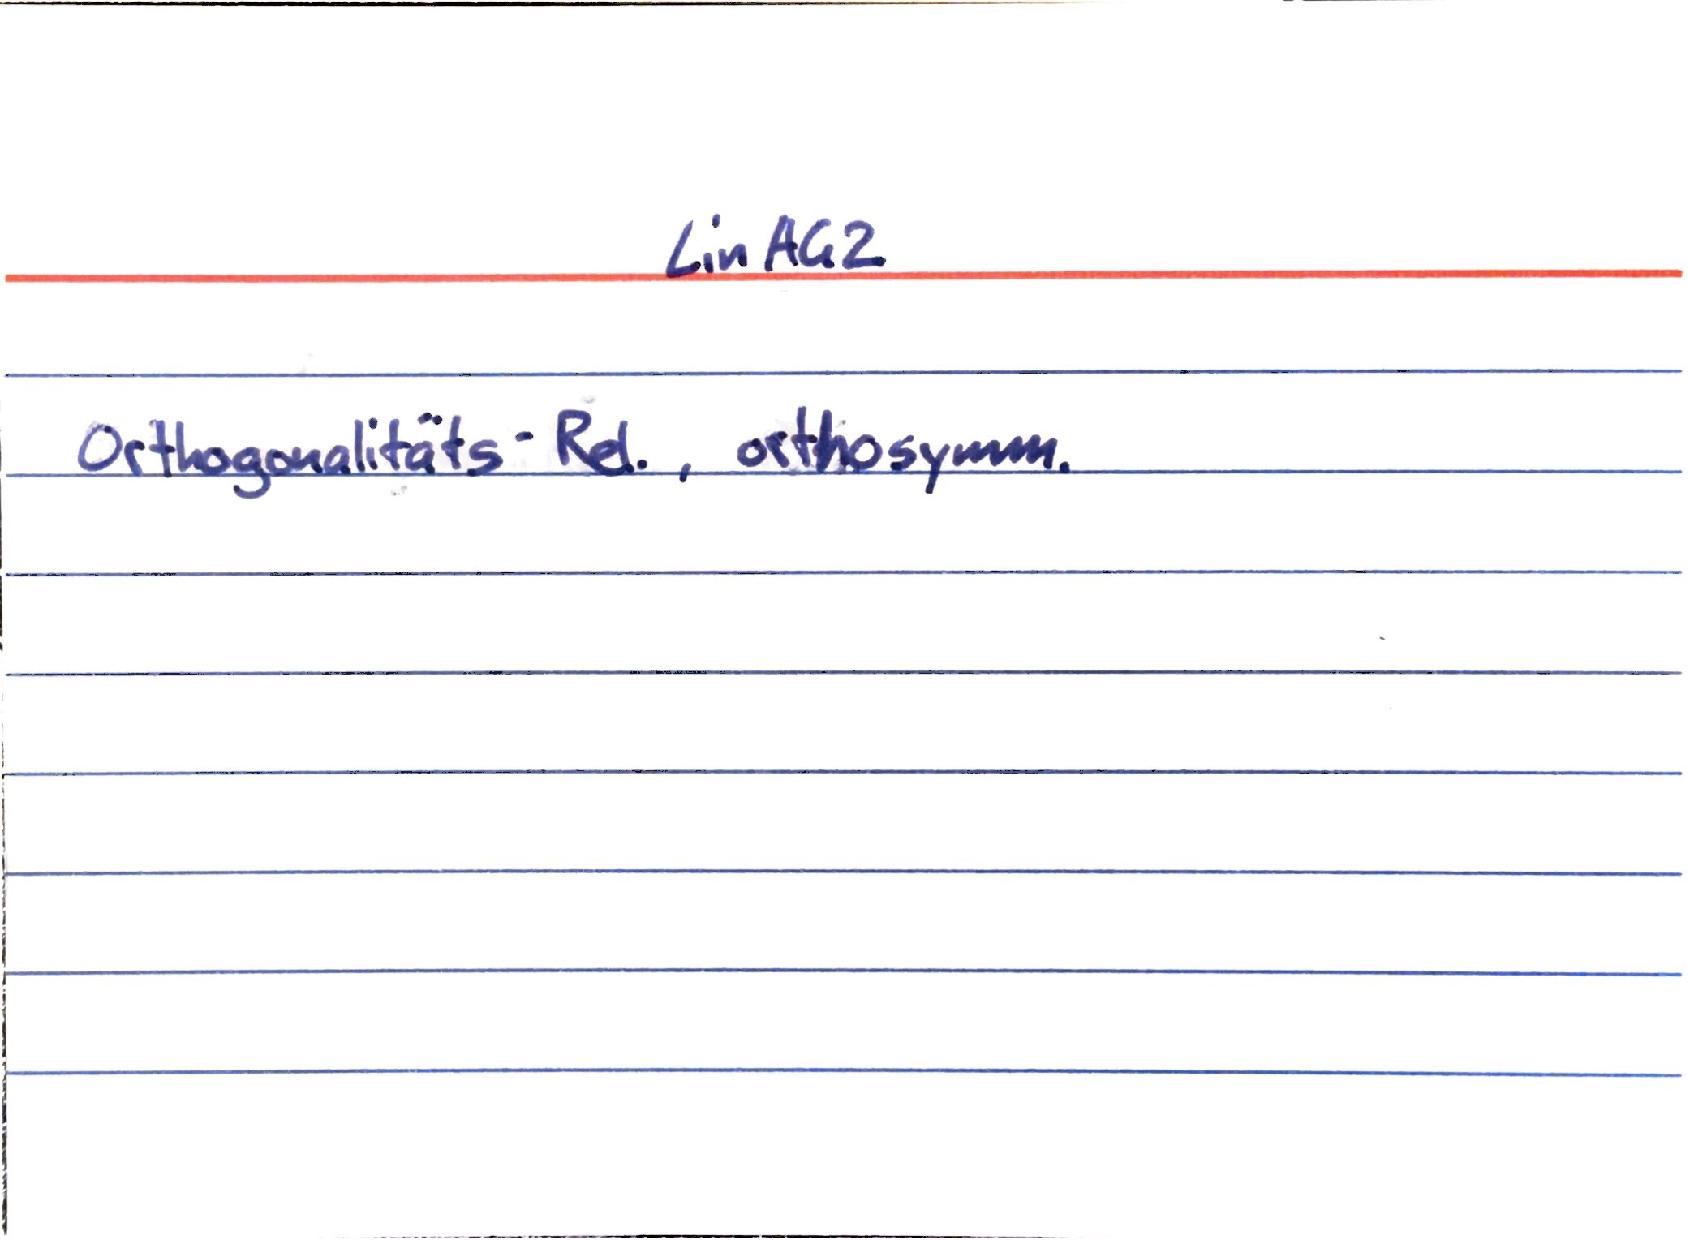 LinAG2
Orthogonalitäts-Rel., orthosymm.